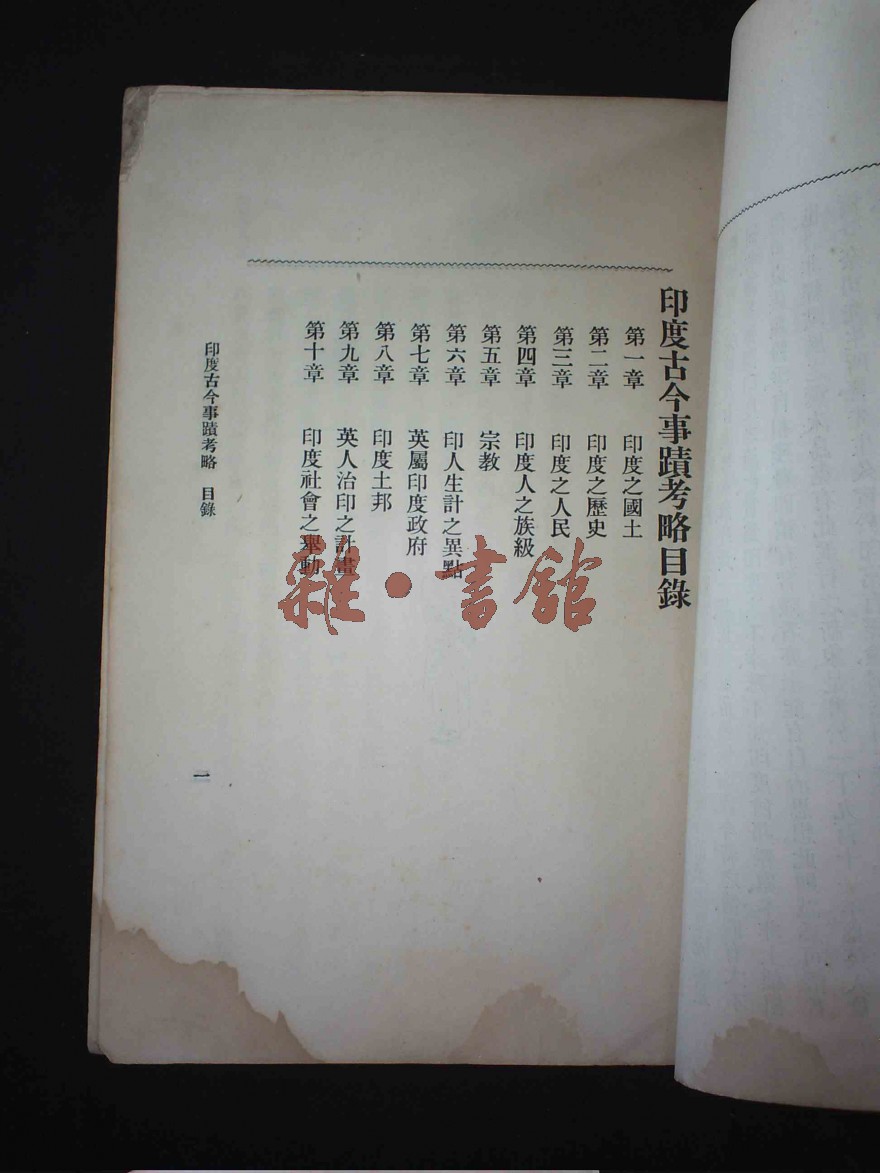 印度古今事蹟考略目錄
第一章　印度之國土
第二章　印度之歷史
第三章　印度之人民
第四章　印度人之族級
第五章　宗教
第六章　印人生計之異點
第七章　英屬印度政府
第八章　印度土邦
第九章　英人治印之計畫
第十章　印度社會之舉動
印度古今事蹟考略　目錄
一
雜·書館